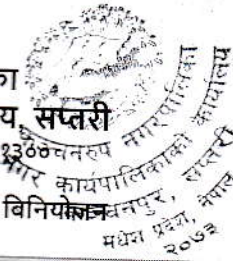 का
य, सप्तरी
१३००
विनियोजन
कञ्चनरुप नगरपालिका
नगर कार्यपालिकाको कार्यालय
कञ्चनपुर, सप्तरी
मधेश प्रदेश, नेपाल
२०७३